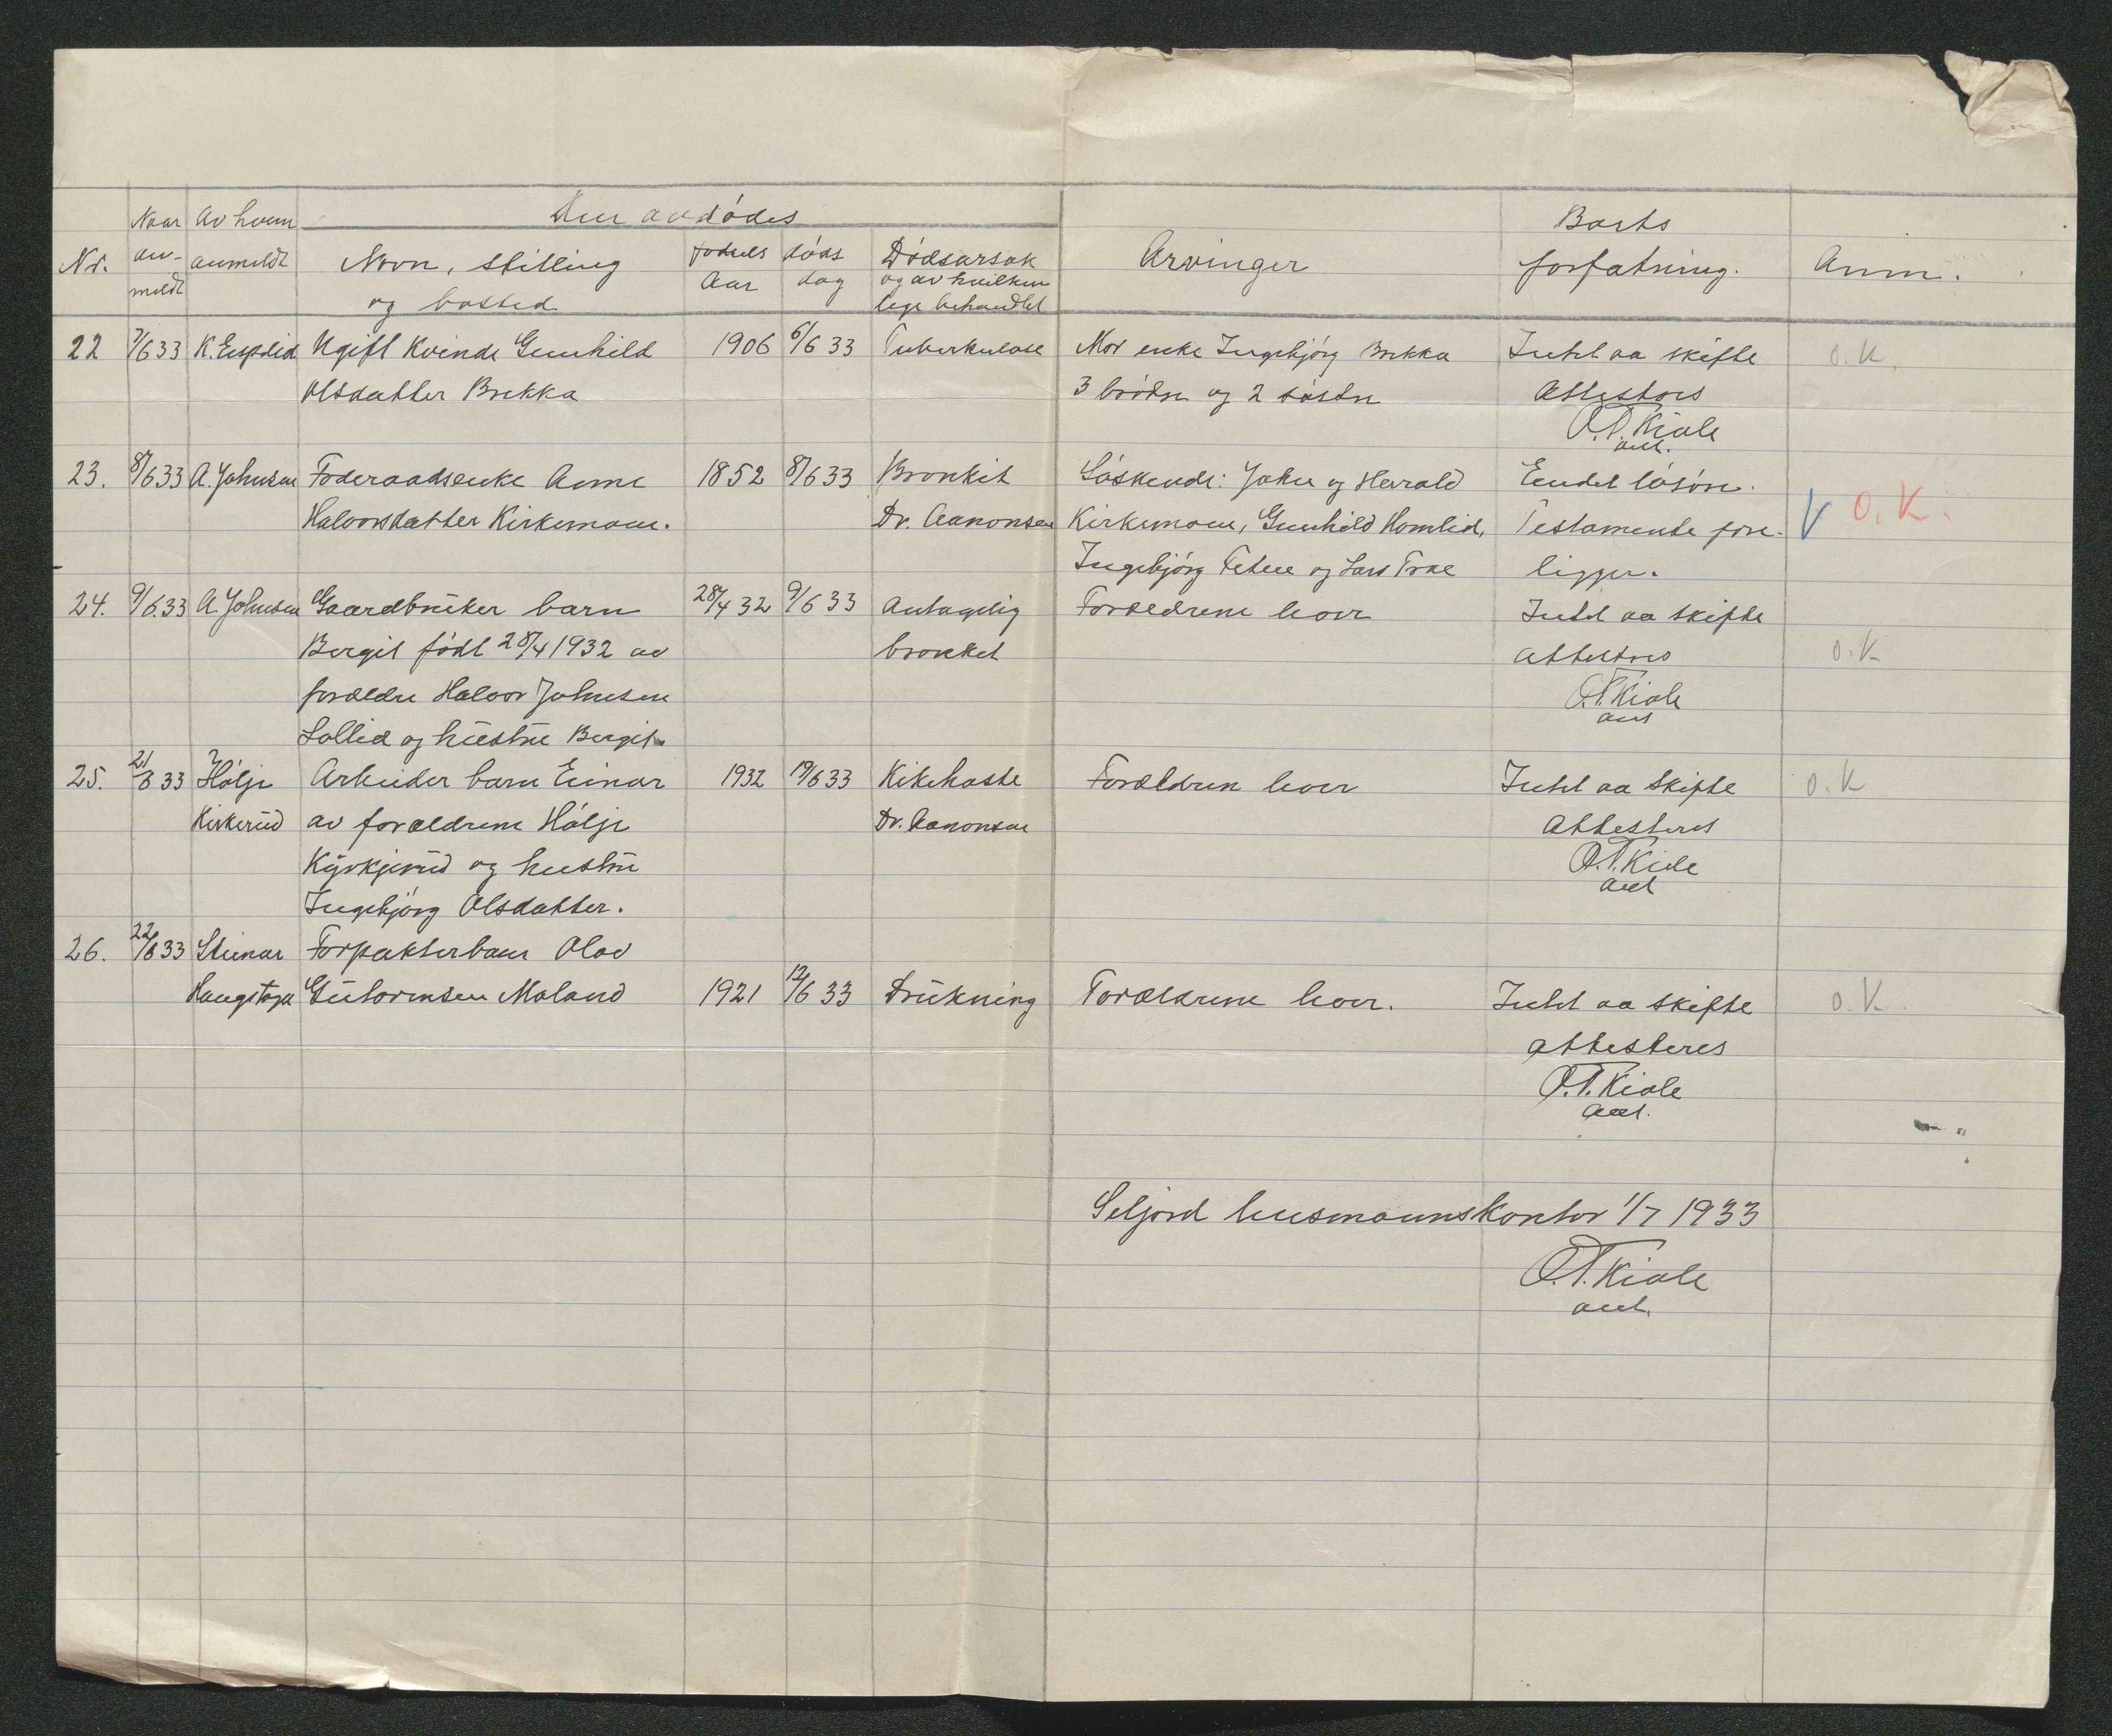 Naar Av hvem Den avdødes Boets
Nr. an- anmeldt Navn, stilling fødsels døds Dødsårsak Arvinger forfatning. Anm.
meldt og bosted Aar dag og av hvilken
lege behandlet
22 7/6 33 K. Espelid Ugift Kvinde Gunhild 1906 6/6 33 Tuberkulose Mor enke Ingebjörg Brekka Intet aa skifte O.K.
Olsdatter Brekka 3 brödre og 2 søstre Attesteres
O.T. Kiale
aut.
23. 8/6 33 A. Johnsen Foderaadsenke Anne 1852 8/6 33 Bronkit Söskende: John og Harald Eendel lösöre. V O.K.
Halvorsdatter Kirkemoen. Dr. Aanonsen Kirkemoen, Gunhild Homlid, Testamente fore-
Ingebjörg Tetue og Lars Trae ligger.
24. 9/6 33 A. Johnsen Gaardbruker barn 28/4 32 9/6 33 Antagelig Forældrene lever Intet aa skifte
Bergit födt 28/4 1932 av bronkit attesteres O.K
forældre Halvor Johnsen O.T. Kiale
Lollid og hustru Bergit. aut
25. 21/6 33 Hölje Arbeider barn Einar 1932 19/6 33 Kikhoste Forældren lever Intet aa Skifte O.K
Kirkerud av forældrene Hölje Dr. Aanonsen Attesteres
Kyrkjerud og hustru O.T. Kiale
Ingebjörg Olsdatter. aut
26. 22/6 33 Steinar Forpakterbarn Olav
Haugstoga Gutormsen Moland 1921 12/6 33 Drukning Forældrene lever. Intet aa skifte O.K.
attesteres
O.T. Kiale
aut.
Seljord lensmannskontor 1/7 1933
O.T. Kiale
aut.